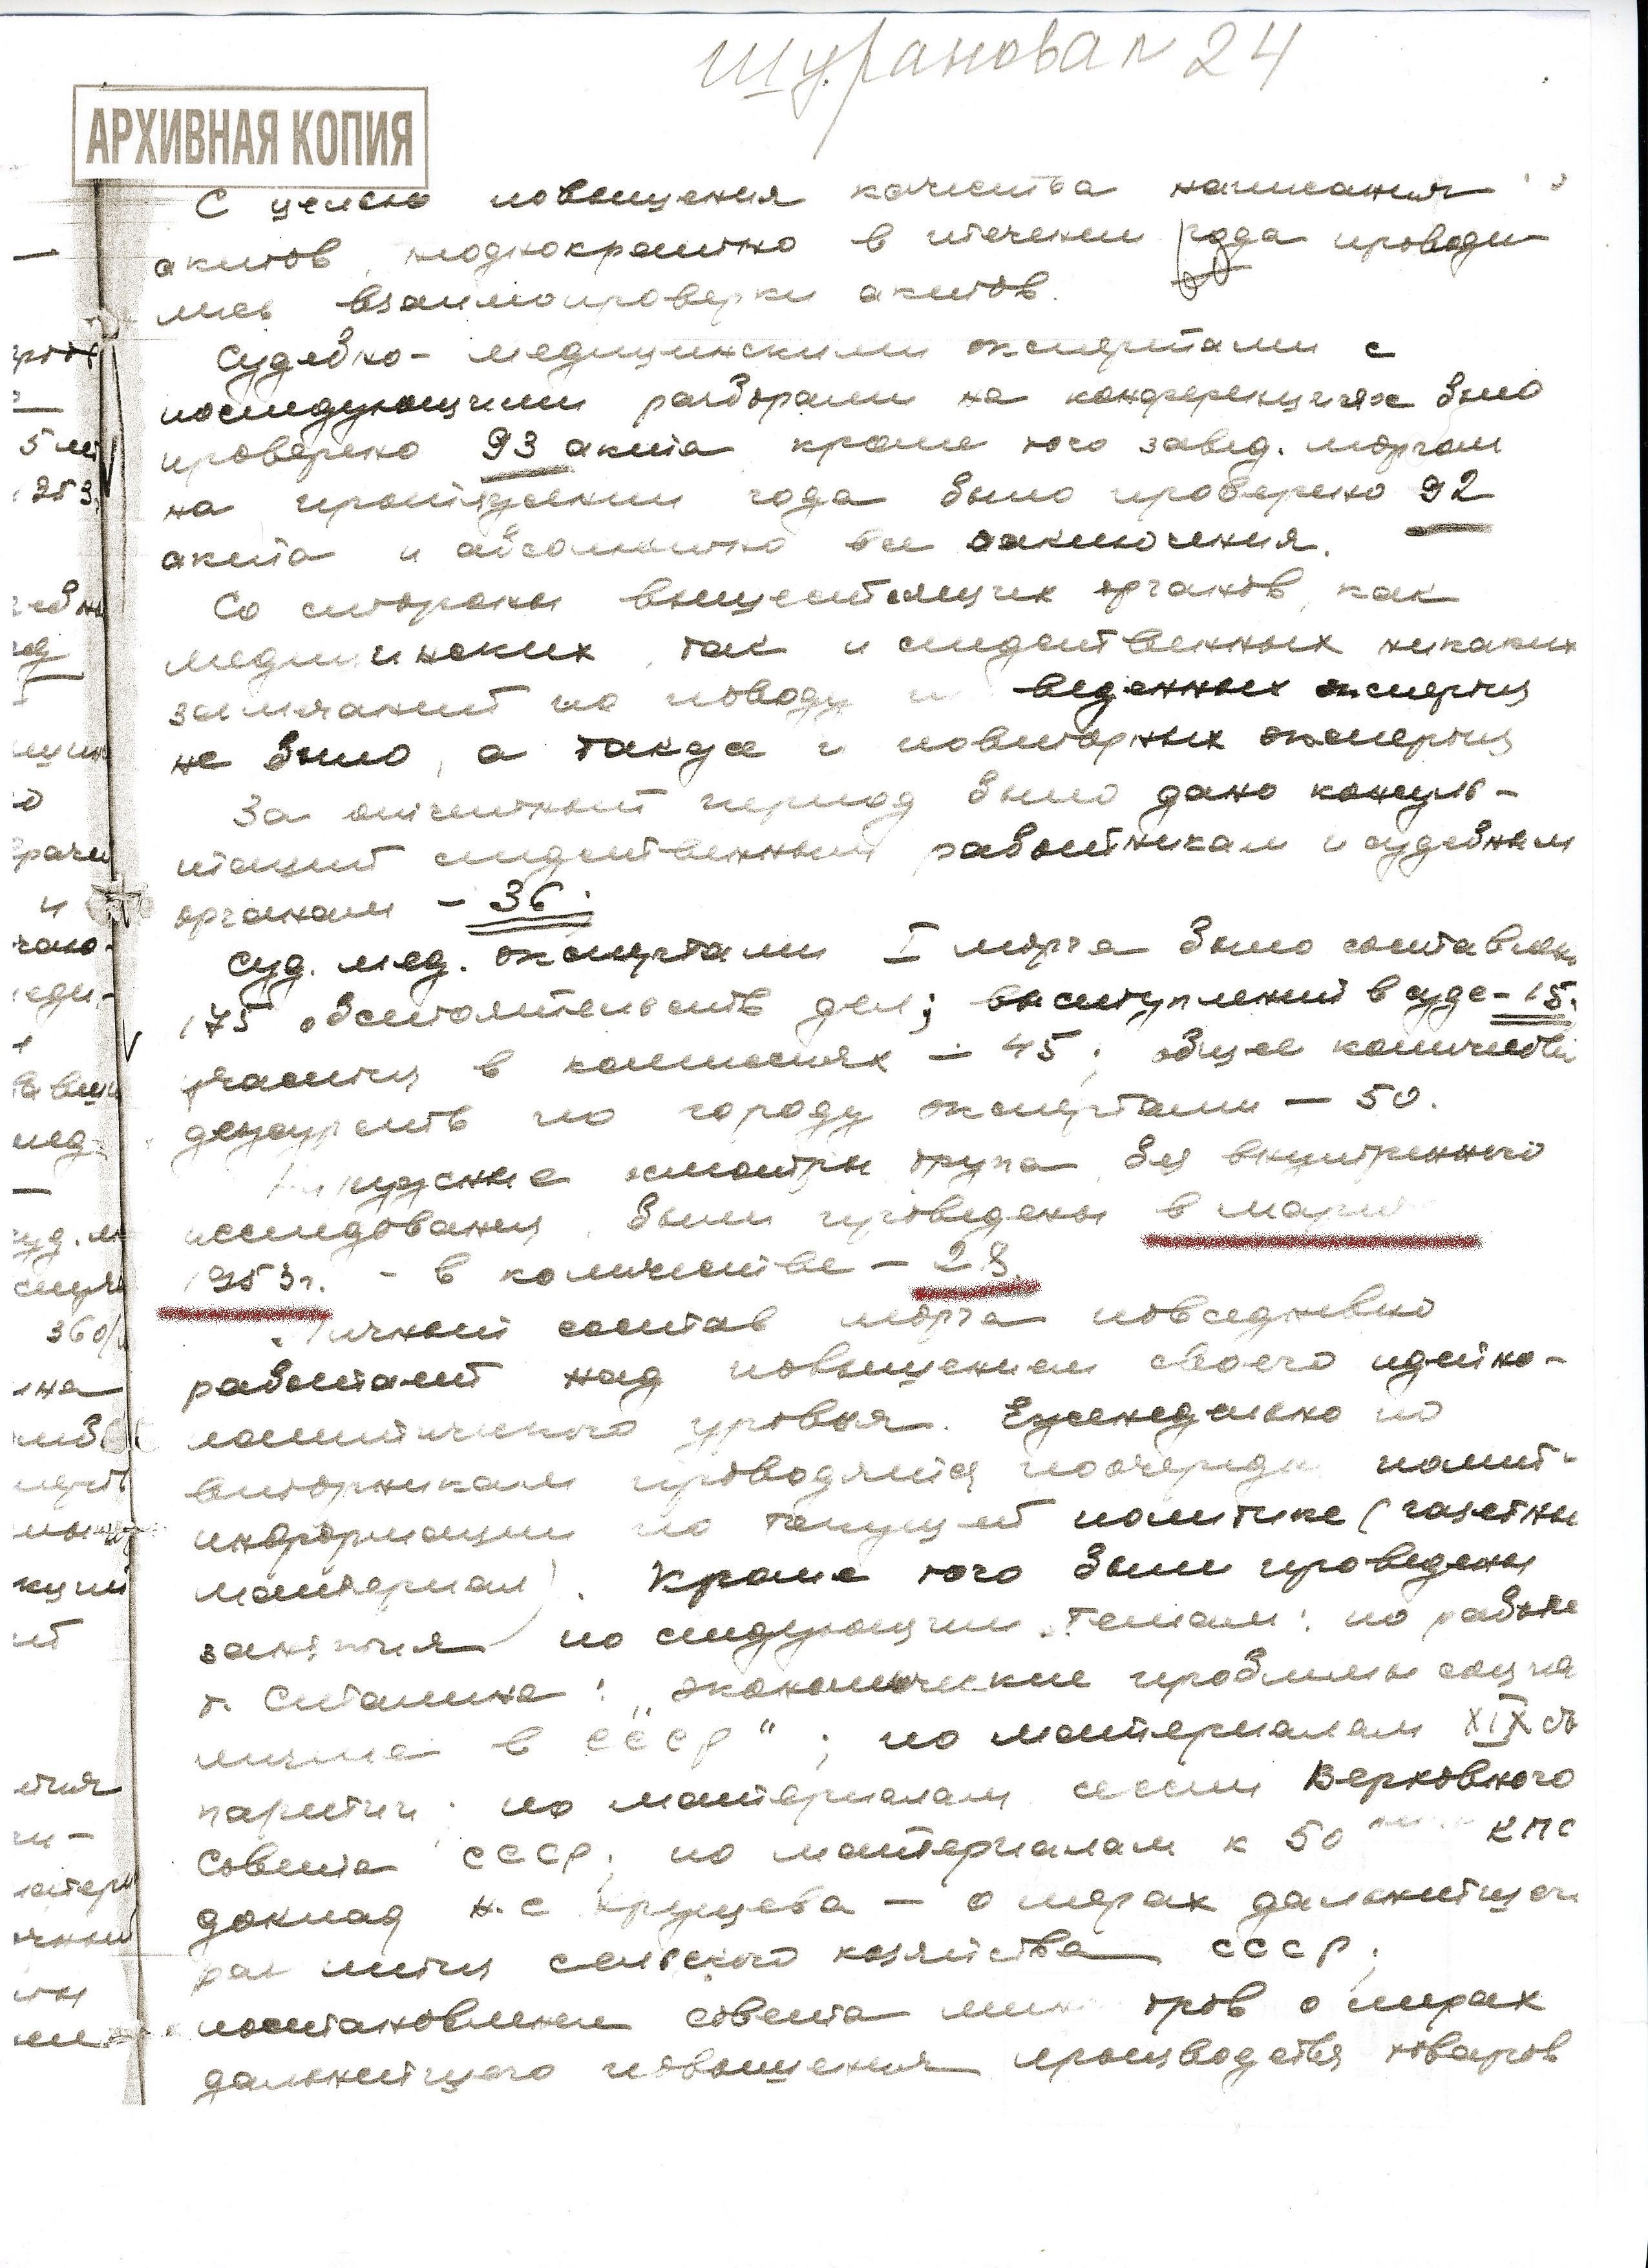 Шуранова л 24
АРХИВНАЯ КОПИЯ
С целью повышения качества написания
актов, неоднократно в течении года проводи-
лись взаимопроверки актов.
Судебно-медицинскими экспертами с
последующими разборами на конференциях было
проверено 93 акта, кроме того завед. моргом
на протяжении года было проверено 92
акта и абсолютно все заключения.
Со стороны вышестоящих органов, как
медицинских, так и следственных никаких
замечаний по поводу веденных экспертиз
не было, а также и повторных экспертиз
За отчетный период было дано консуль-
таций следственным работникам и судебным
органам - 36.
Суд. мед. экспертами I морга было составлено
175 обстоятельств дел; выступлений в суде - 15.
участия в комиссиях - 45; общее количество
дежурств по городу экспертами - 50.
Наружные осмотры трупа без внутреннего
исследования, были проведены в марте
1953 г. - в количестве - 28.
Личный состав морга повседневно
работает над повышением своего идейно-
политического уровня. Еженедельно по
вторникам проводятся поочереди полит-
информации по текущей политике (газетны
материал). Кроме того были проведены
занятия по следующим темам: по работе
т. Сталина: "Экономические проблемы социа
лизма в СССР"; по материалам XIX съ
партии; по материалам сессии Верховного
Совета СССР; по материалам к 50 КПС
доклад Н.С Хрущева - о мерах дальнейшего
развития сельского хозяйства СССР;
постановление совета министров о мерах
дальнейшего повышения производства товаров